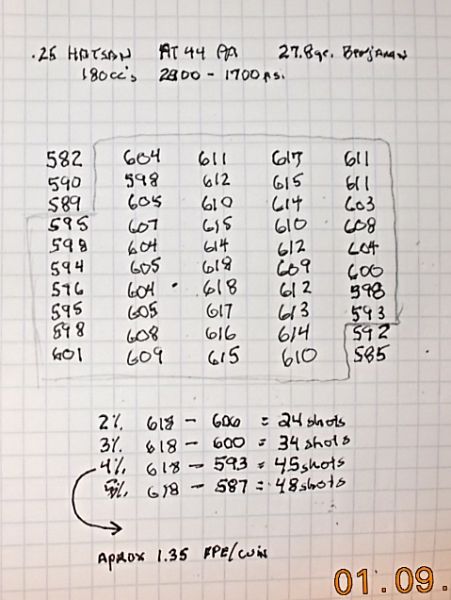 .25 HATSAN AT 44 PA 27.8gr. Benjamin
180cc's 2800 - 1700 psi.
582 604 611 617 611
590 598 612 615 611
589 605 610 614 603
595 607 615 610 608
598 604 614 612 604
594 605 618 609 600
596 604 618 612 598
595 605 617 613 593
598 608 616 614 592
601 609 615 610 585
2% 618 - 606 = 24 shots
3% 618 - 600 = 34 shots
4% 618 - 593 = 45 shots
5% 618 - 587 = 48 shots
Aprox 1.35 FPE/cuin
01.09.